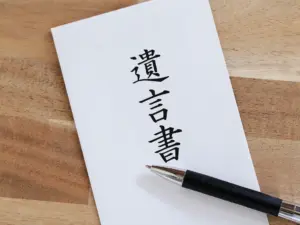 遺言書